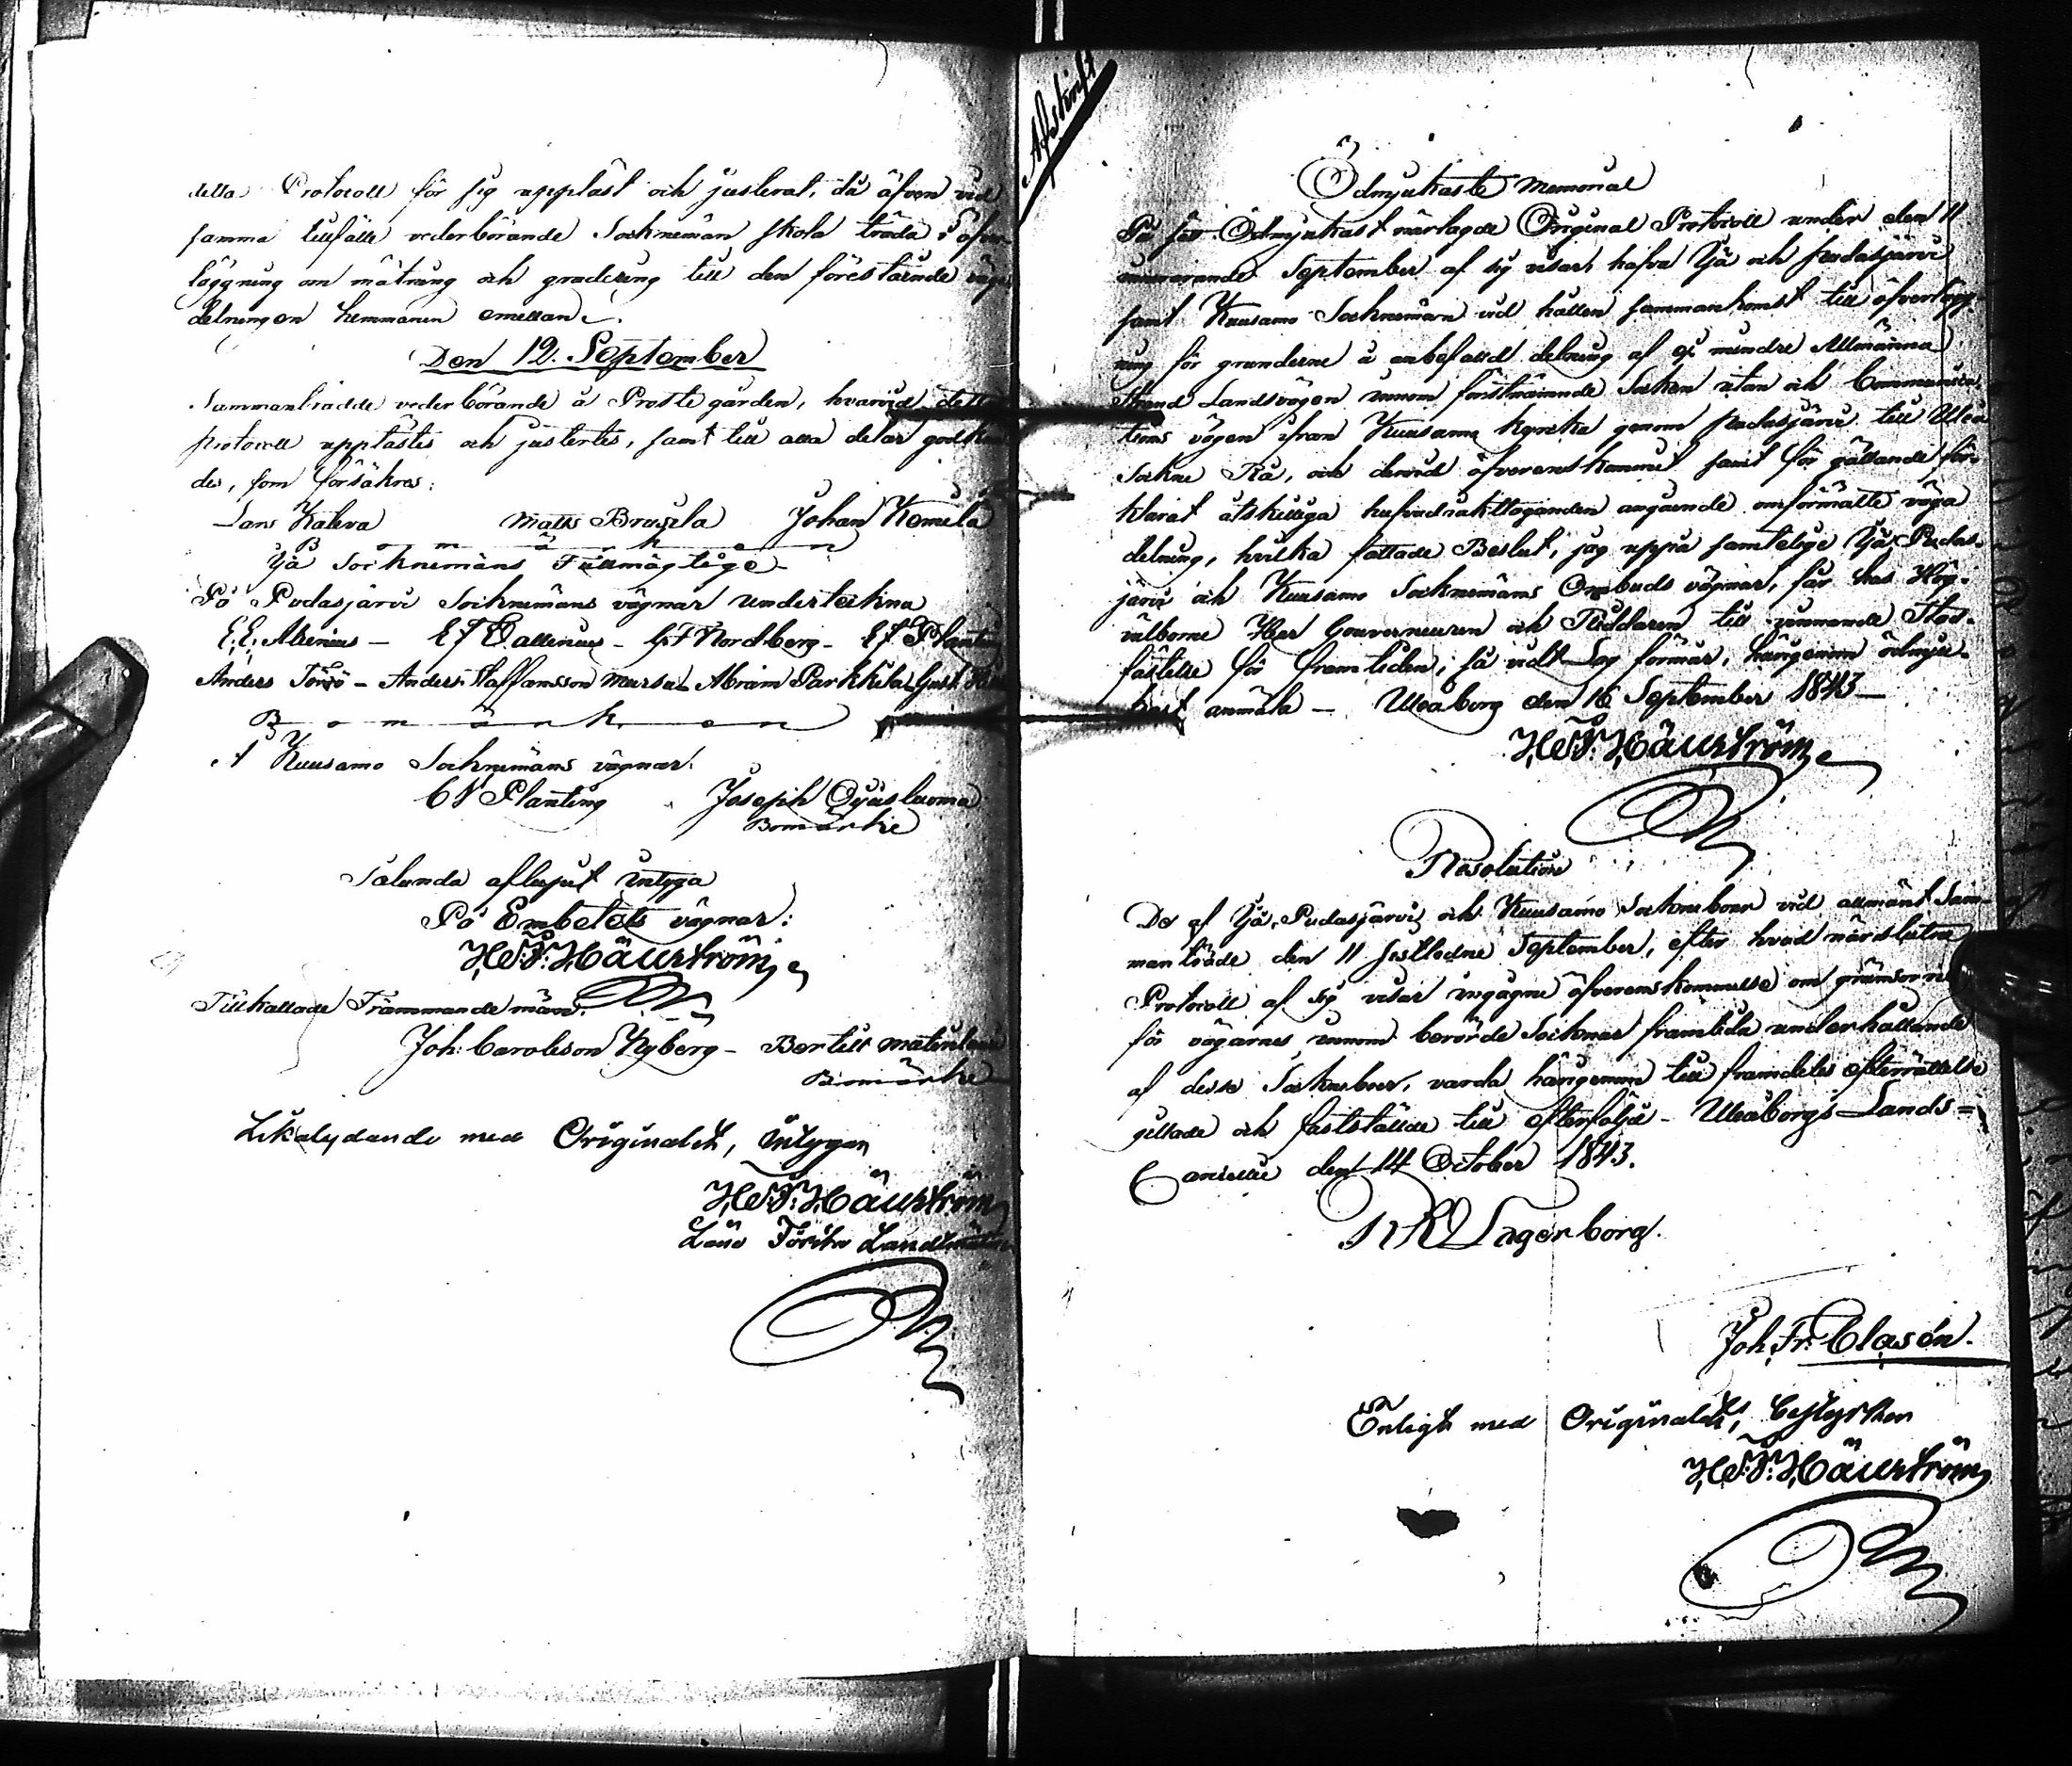 detta Protocoll för sig uppläst och justerat, då äfven vid
samma tillfälle vederbörande Socknemän skola träda i öfver
läggning om mätning och gradering till den föreståendе väge
delningen hemmanen emellan.
Den 12. September
Sammanträdde vederbörande å Prostegården, hvarvid detta
protocoll upplästes och justertes, samt till alla delar godkän
des, som försäkras:
Lars Kaleva Matts Brusila Johan Komula
Bomärken
Ijå Socknemäns Fullmägtige
På Pudasjärvi Socknemäns vägnar underteckna
E. E. Alcenius – E J Wallenius – G. F Nordberg – E J Planting
Anders – Anders Staffansson Mursu – Abram Parkkila – Gust.
Bomärken
Å Kuusamo Socknemäns vägnar.
C N Planting Joseph Oijusluoma
Bomärke
Sålunda aflupit intyga
På Embetets vägnar:
H. P. Hällström
Tillkallade Främmande män.
Joh: Carolsson Nyberg – Bertill
Bomärke
Likalydande med Originalet, intygar
H. P. Hällström
Läne Förste Landtmätare
Afskrift
Ödmjukaste Memorial
På sätt Ödmjukast närlagde Original Protocoll under den 11
innevarande September af sig visar, hafva Ijå och Pudasjärvi
samt Kuusamo Socknemän vid hållen sammankomst till öfverlägg-
ning för grunderne å anbefalld delning af ej mindre Allmänna
Strand Landsvägen innom förstnämnde Socken utan och Communica-
tions vägen ifrån Kuusamo kyrka genom Pudasjärvi till Uleå
Sockne Rå, och dervid öfverenskommit samt för gällande för-
klarat åtskilliga hufvudiakttaganden angående omförmälte väga
delning, hvilka fattade Beslut, jag uppå samtelige Ijå, Pudas-
järvi och Kuusamo Socknemäns Ombuds vägnar, får hos Hög-
välborne Herr Gouverneuren och Riddaren till vinnande Stad-
fästelse för framtiden, så vidt Lag förmår, härigenom ödmju-
kast anmäla – Uleåborg den 16 September 1843 –
H. P. Hällström
Resolution
De af Ijå, Pudasjärvi och Kuusamo Sockneboer vid allmänt Sam-
manträde den 11 sistledne September, efter hvad närslutne
Protocoll af sig visar ingågne öfverenskommelse om grunderne
för vägarnes innom berörde Socknar framtida underhållande
af desse Sockneboer, varda härigenom till framdeles efterrättelse
gillade och fastställde till efterfölje – Uleåborgs Lands=
Cancellie den 14 October 1843.
R W Lagerborg.
Joh. Fr. Clasén.
Enligt med Originalet, betygar
H. P. Hällström